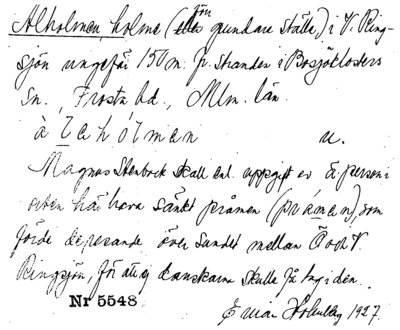 Alholmen, holme (eller grundare ställe,) i V. Ring-
sjön ungefär 150 m. fr. stranden i Bosjöklosters
Sn., Frosta hd., Mlm. län.
à l a h ó l m a n u.
Magnus Stenbock skall enl. uppgift av ä. person i
orten här hava sänkt pråmen (pråmen), som
förde de resande över sundet mellan Ö och V.
Ringsjön, för att ej danskarna skulle få tag i den.
Nr 5548 Einar Holmberg 1927.